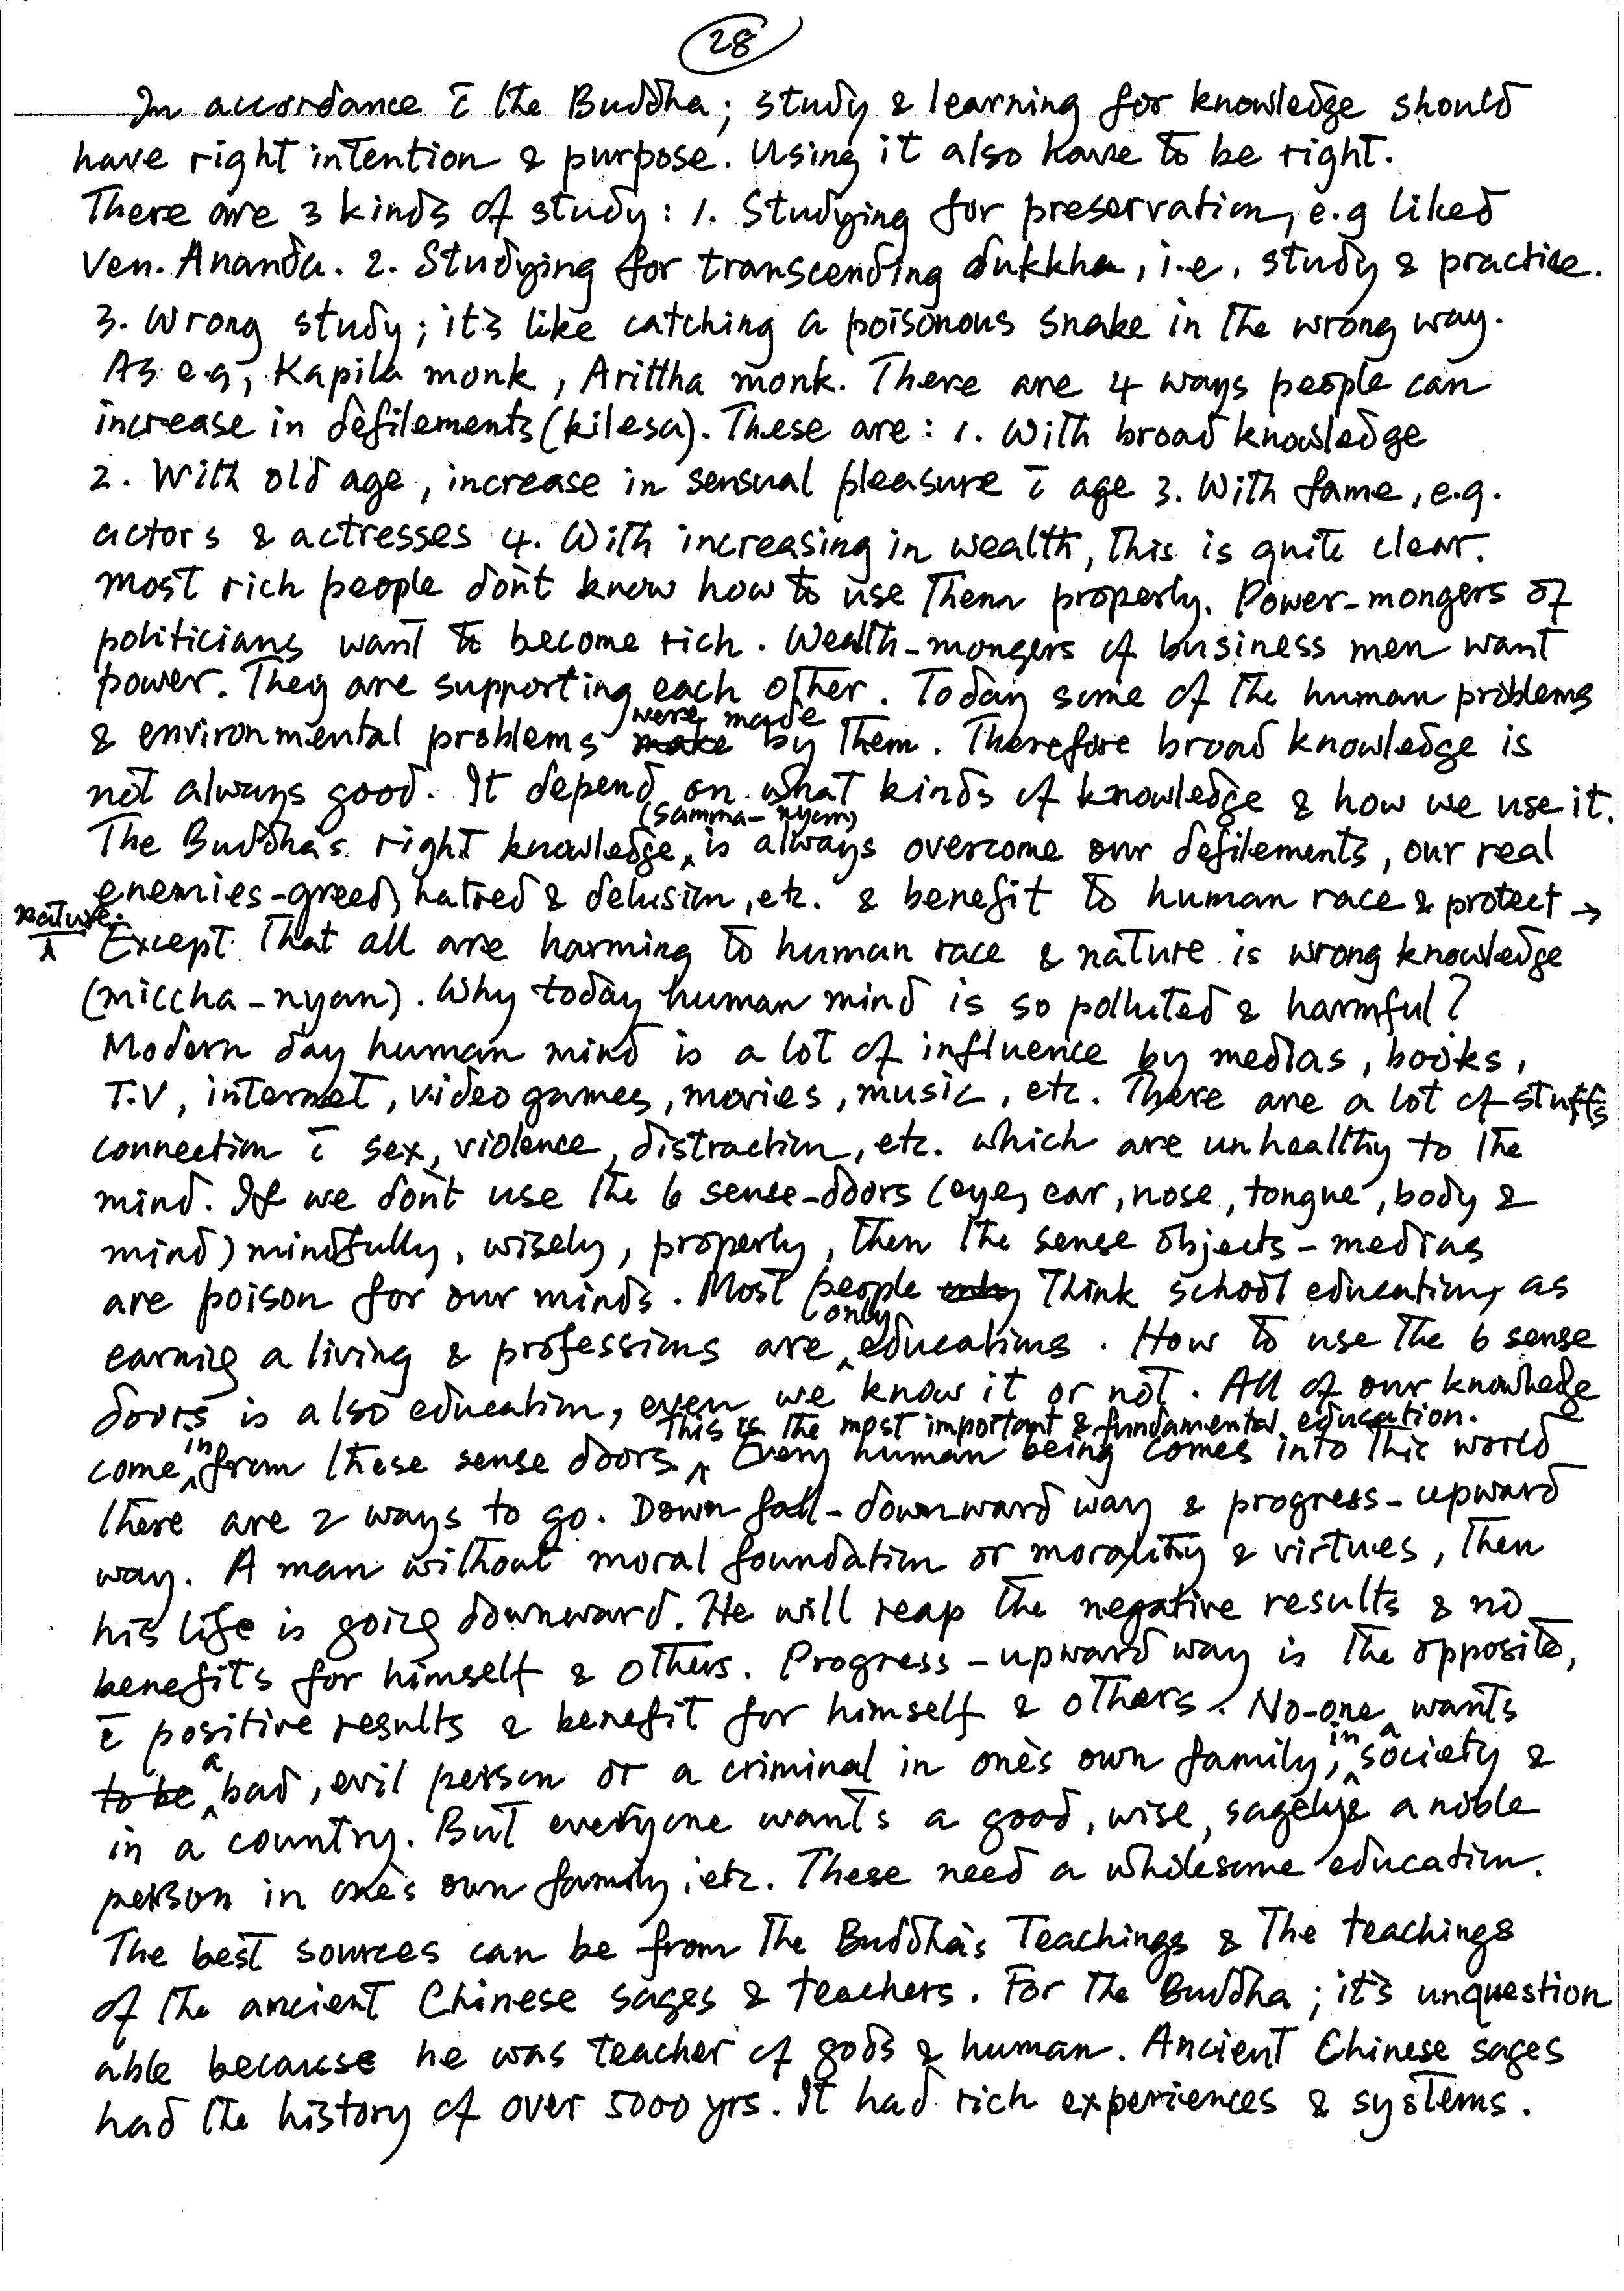 28
In accordance c̄ the Buddha; study & learning for knowledge should
have right intention & purpose. Using it also have to be right.
There are 3 kinds of study: 1. Studying for preservation, e.g liked
Ven. Ananda. 2. Studying for transcending dukkha, i.e, study & practice.
3. Wrong study; it's like catching a poisonous snake in the wrong way.
As e.g, Kapila monk, Arittha monk. There are 4 ways people can
increase in defilements (kilesa). These are: 1. With broad knowledge
2. With old age, increase in sensual pleasure c̄ age 3. With fame, e.g.
actors & actresses 4. With increasing in wealth, this is quite clear.
Most rich people don't know how to use them properly. Power-mongers of
politicians want to become rich. Wealth-mongers of business men want
power. They are supporting each other. Today some of the human problems
& environmental problems were made by them. Therefore broad knowledge is
not always good. It depend on what kinds of knowledge & how we use it.
The Buddha's right knowledge (samma-nyan) is always overcome our defilements, our real
enemies-greed, hatred & delusion, etc. & benefit to human race & protect →
nature. Except that all are harming to human race & nature is wrong knowledge
(miccha-nyan). Why today human mind is so polluted & harmful?
Modern day human mind is a lot of influence by medias, books,
T.V, internet, video games, movies, music, etc. There are a lot of stuffs
connection c̄ sex, violence, distraction, etc. which are unhealthy to the
mind. If we don't use the 6 sense-doors (eye, ear, nose, tongue, body &
mind) mindfully, wisely, properly, then the sense objects - medias
are poison for our minds. Most people think school education, as
earning a living & professions are only educations. How to use the 6 sense
doors is also education, even we know it or not. All of our knowledge
come in from these sense doors. This is the most important & fundamental education. Every human being comes into this world
there are 2 ways to go. Down fall-downward way & progress-upward
way. A man without moral foundation or morality & virtues, then
his life is going downward. He will reap the negative results & no
benefits for himself & others. Progress-upward way is the opposite,
c̄ positive results & benefit for himself & others. No-one wants
a bad, evil person or a criminal in one's own family, in a society &
in a country. But everyone wants a good, wise, sagely & a noble
person in one's own family, etc. These need a wholesome education.
The best sources can be from the Buddha's Teachings & the teachings
of the ancient Chinese sages & teachers. For the Buddha; it's unquestion
able because he was teacher of gods & human. Ancient Chinese sages
had the history of over 5000 yrs. It had rich experiences & systems.